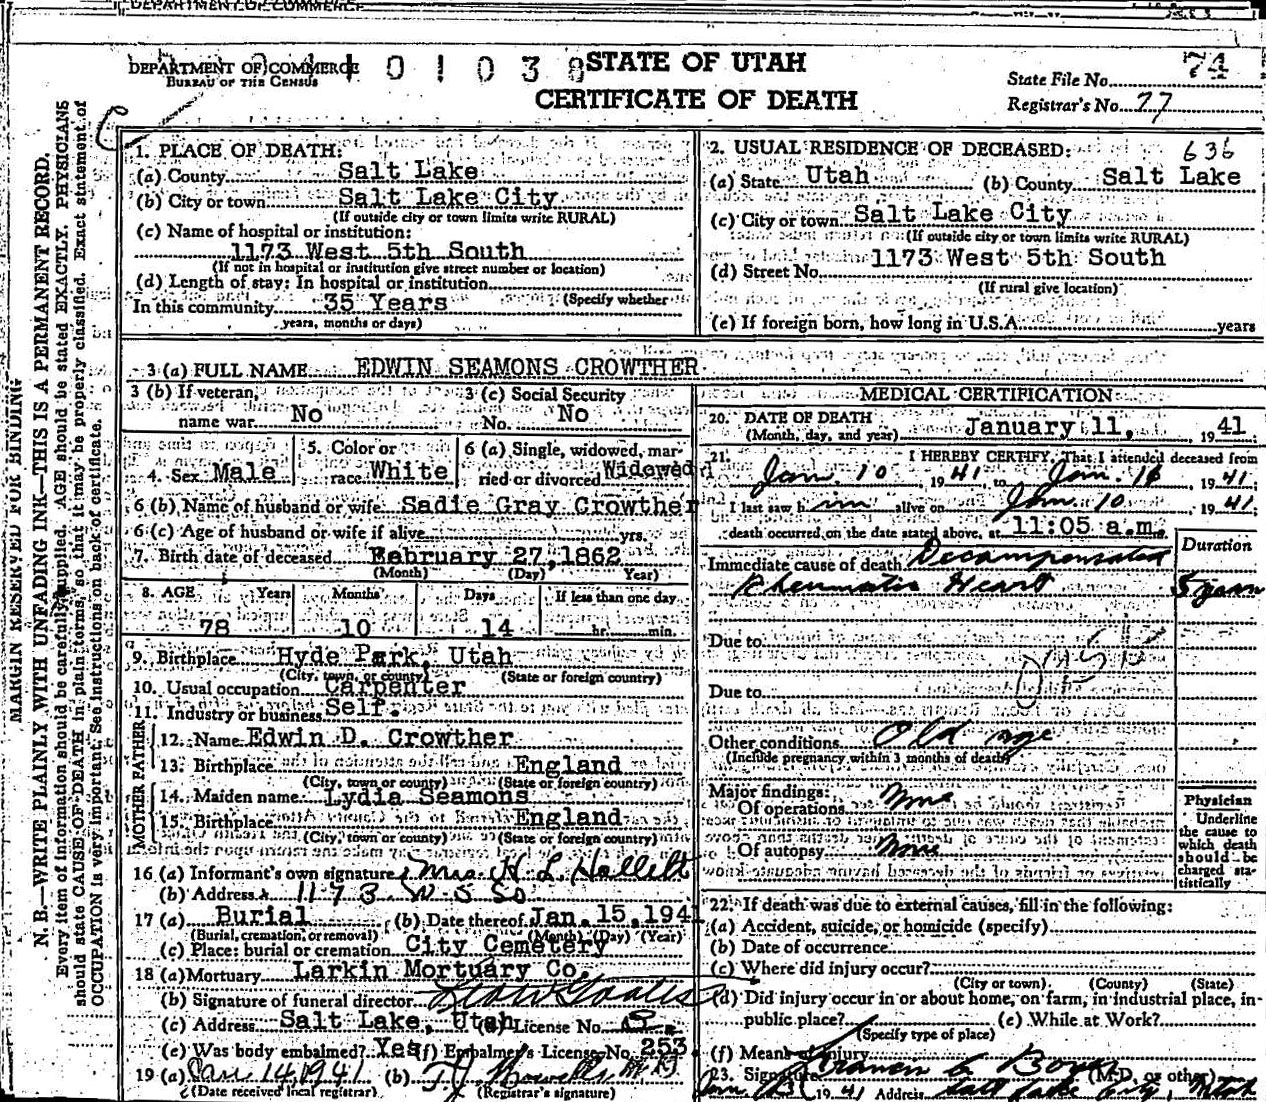 DEPARTMENT OF COMMERCE
DEPARTMENT OF COMMERCE
BUREAU OF THE CENSUS
0 1 0 3 8
STATE OF UTAH
CERTIFICATE OF DEATH
State File No. 74
Registrar's No. 77
MARGIN RESERVED FOR BINDING
N. B.—WRITE PLAINLY WITH UNFADING INK—THIS IS A PERMANENT RECORD.
Every item of information should be carefully supplied. AGE should be stated EXACTLY. PHYSICIANS
should state CAUSE OF DEATH in plain terms, so that it may be properly classified. Exact statement of
OCCUPATION is very important. See instructions on back of certificate.
1. PLACE OF DEATH:
(a) County Salt Lake
(b) City or town Salt Lake City
(If outside city or town limits write RURAL)
(c) Name of hospital or institution:
1173 West 5th South
(If not in hospital or institution give street number or location)
(d) Length of stay: In hospital or institution
(Specify whether
In this community 35 Years
years, months or days)
2. USUAL RESIDENCE OF DECEASED: 636
(a) State Utah (b) County Salt Lake
(c) City or town Salt Lake City
(If outside city or town limits write RURAL)
(d) Street No. 1173 West 5th South
(If rural give location)
(e) If foreign born, how long in U.S.A. years
3 (a) FULL NAME EDWIN SEAMONS CROWTHER
3 (b) If veteran, name war No
3 (c) Social Security No. No
4. Sex Male
5. Color or race White
6 (a) Single, widowed, married or divorced Widowed
6 (b) Name of husband or wife Sadie Gray Crowther
6 (c) Age of husband or wife if alive yrs.
7. Birth date of deceased February 27, 1862
(Month) (Day) Year)
8. AGE Years Months Days If less than one day
78 10 14 hr. min.
9. Birthplace Hyde Park, Utah
(City, town, or county) (State or foreign country)
10. Usual occupation Carpenter
11. Industry or business Self.
FATHER
12. Name Edwin D. Crowther
13. Birthplace England
(City, town or county) (State or foreign country)
MOTHER
14. Maiden name Lydia Seamons
15. Birthplace England
(City, town or county) (State or foreign country)
16 (a) Informant's own signature Mrs. H L
(b) Address 1173 W-5 So
17 (a) Burial (b) Date thereof Jan. 15, 1941
(Burial, cremation, or removal) (Month) (Day) (Year)
(c) Place: burial or cremation City Cemetery
18 (a) Mortuary Larkin Mortuary Co.
(b) Signature of funeral director
(c) Address Salt Lake, Utah License No.
(e) Was body embalmed? Yes (f) Embalmer's License No. 253
19 (a) Jan 14, 1941 (b)
(Date received local registrar) (Registrar's signature)
MEDICAL CERTIFICATION
20. DATE OF DEATH
(Month, day, and year) January 11, 1941
21. I HEREBY CERTIFY, That I attended deceased from
Jan. 10, 1941, to Jan. , 1941,
I last saw him alive on Jan. 10, 1941,
death occurred on the date stated above, at 11:05 a.m.
Duration
Immediate cause of death Decompensated
Rheumatic Heart 5 years
Due to
Due to
Other conditions Old age
(Include pregnancy within 3 months of death)
Major findings:
Of operations None
Of autopsy None
Physician
Underline
the cause to
which death
should be
charged statistically
22. If death was due to external causes, fill in the following:
(a) Accident, suicide, or homicide (specify)
(b) Date of occurrence
(c) Where did injury occur?
(City or town) (County) (State)
(d) Did injury occur in or about home, on farm, in industrial place, in
public place? (e) While at Work?
(Specify type of place)
(f) Means of injury
23. Signature (M.D. or other)
1941 Address Salt Lake City, Utah